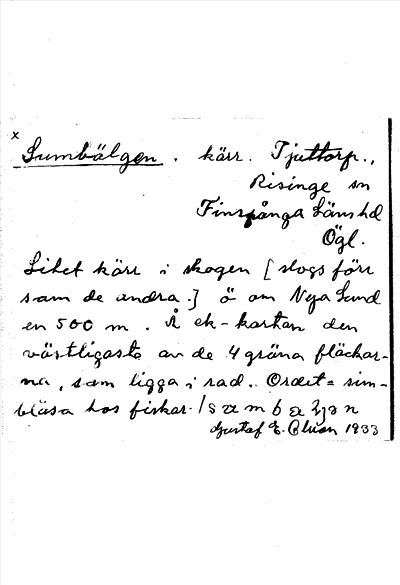 x
Sumbälgen. kärr. Tjuttorp.,
Risinge sn
Finspånga Läns hd
Ögl.
Litet kärr i skogen [slogs förr
som de andra.] ö om Nya Lund
en 500 m. Å ek-kartan den
västligaste av de 4 gröna fläckar-
na, som ligga i rad. Ordet = sim-
blåsa hos fiskar.
Gustaf E. 1933